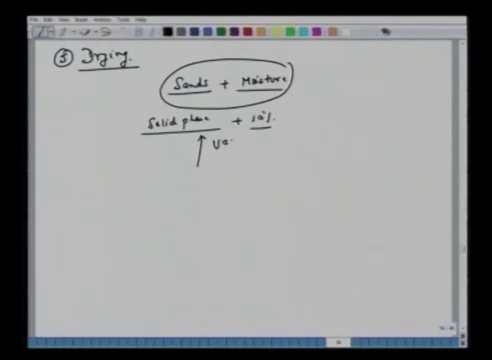 File Edit View Insert Actions Tools Help
5 Drying.
Sands + Moisture
Solid phase + 10%.